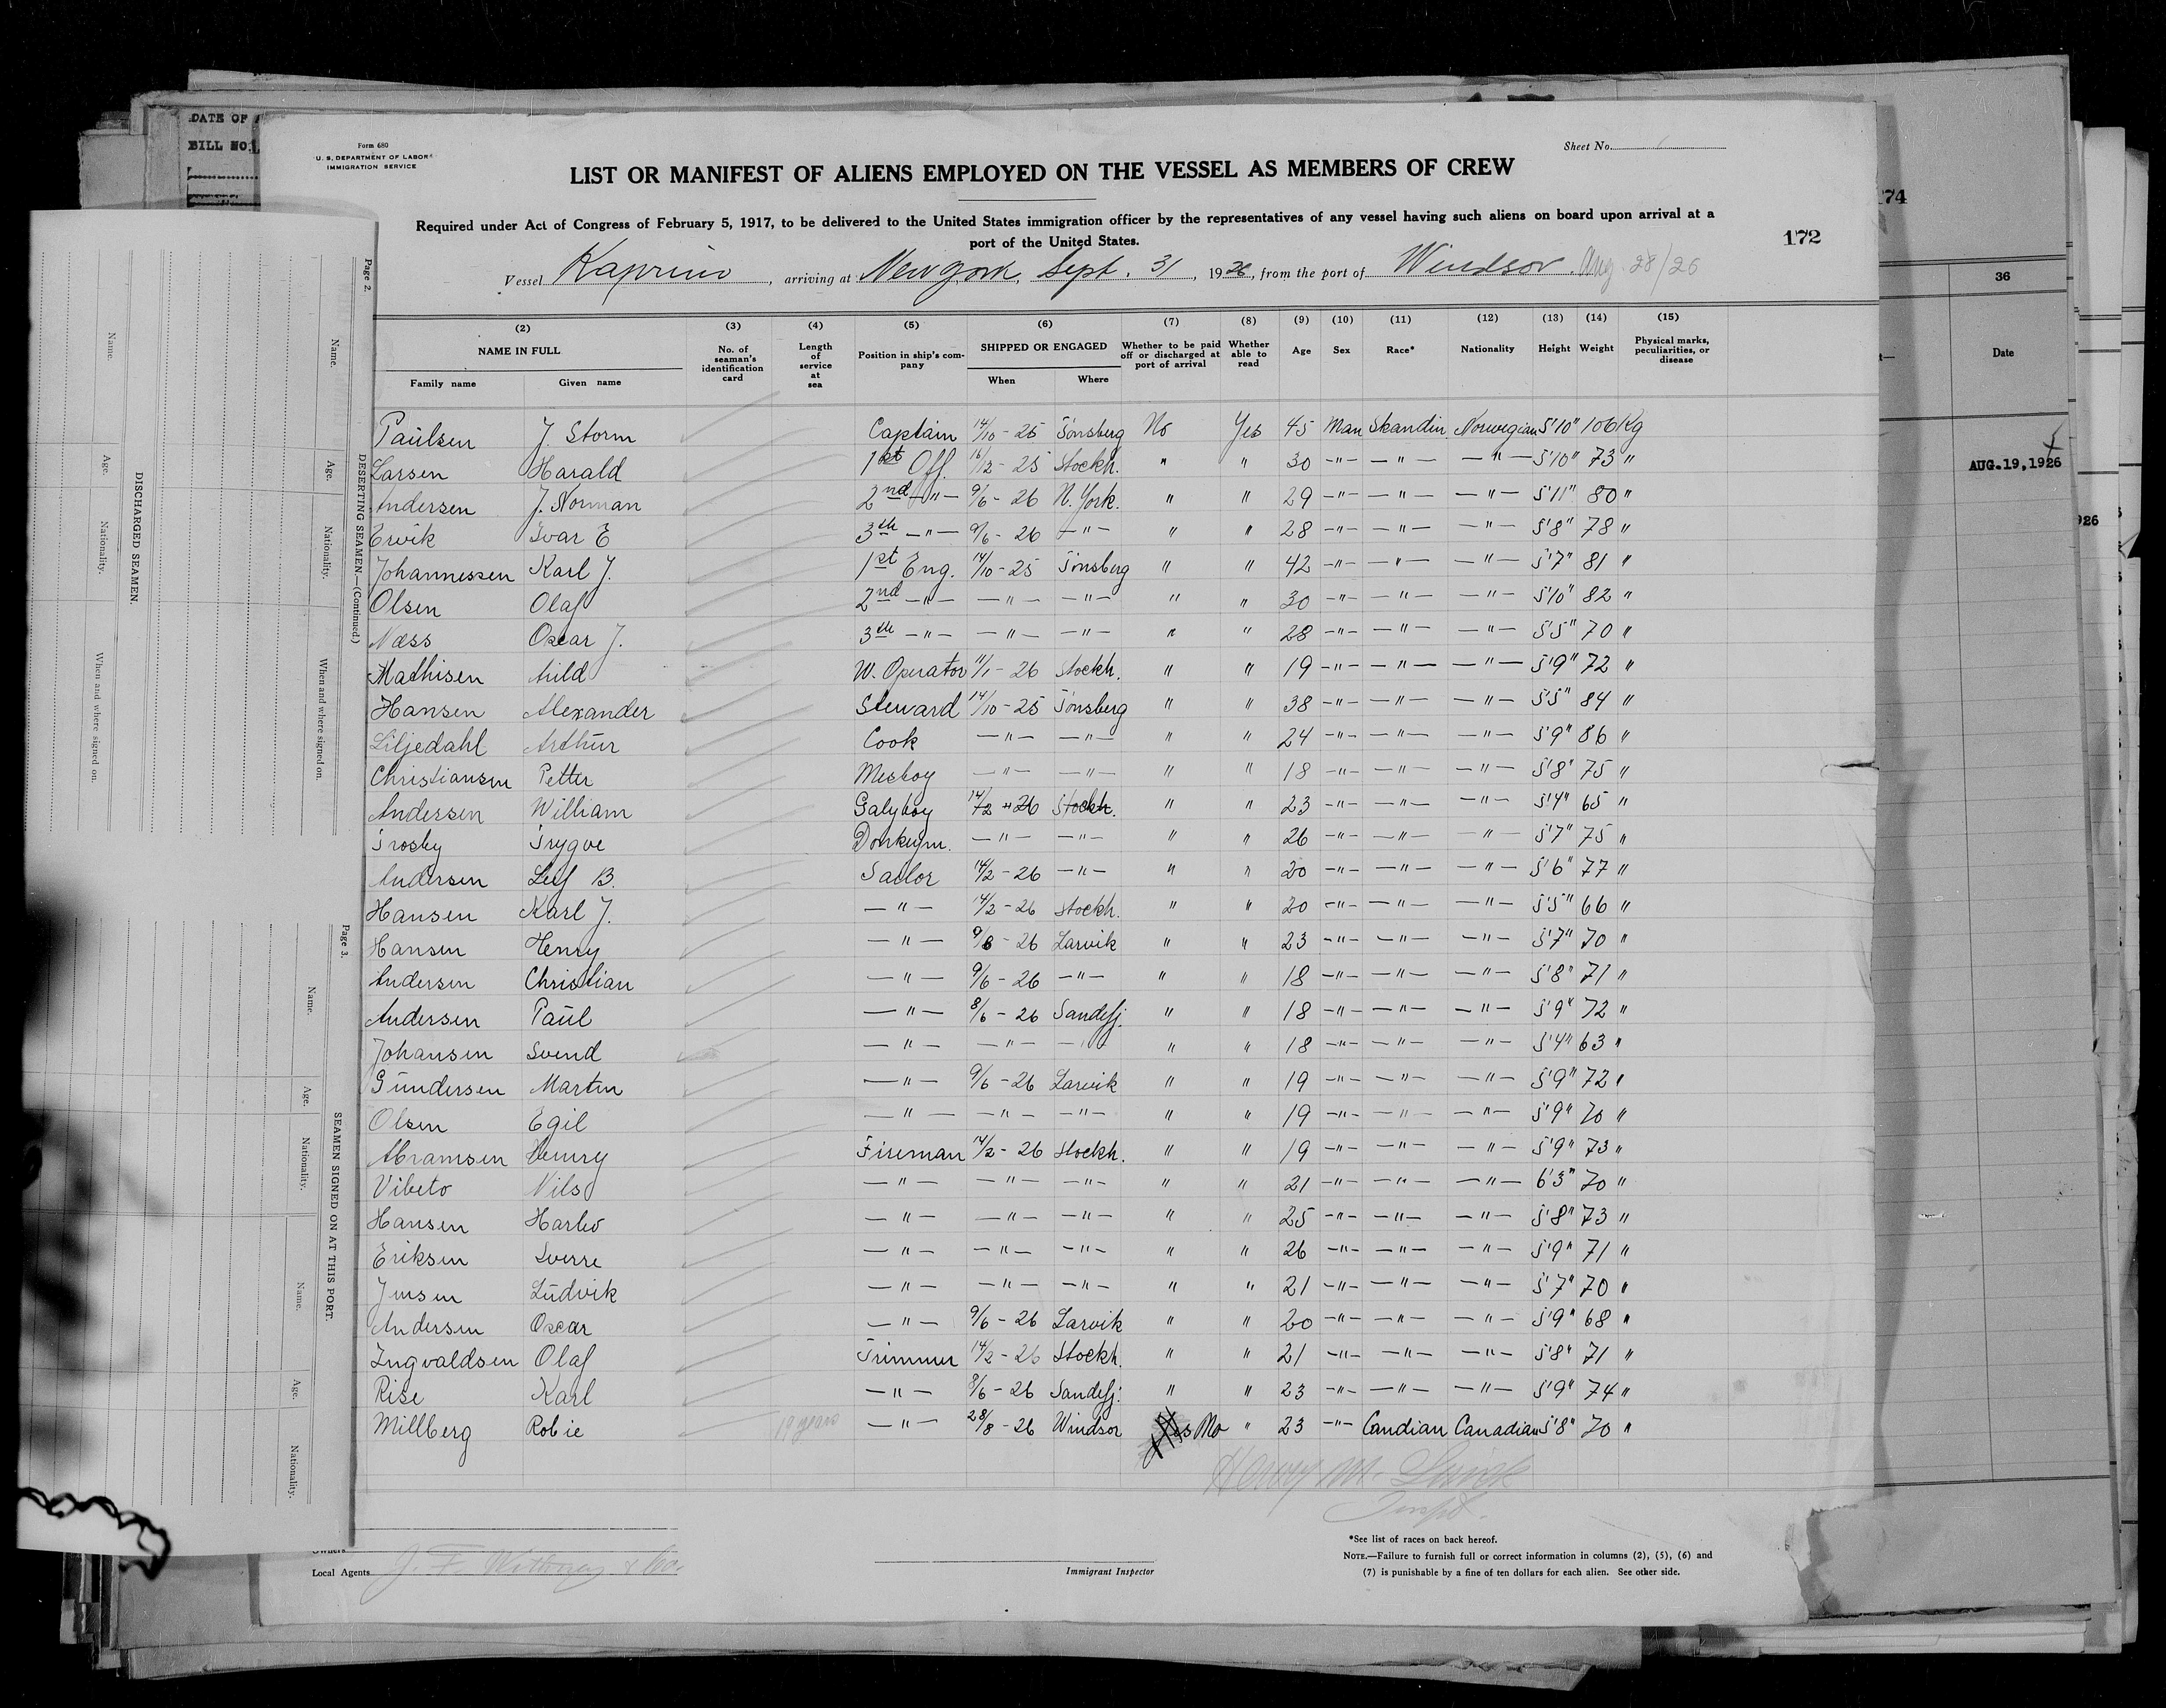 DATE OF
BILL NO.
Form 680
U. S. DEPARTMENT OF LABOR
IMMIGRATION SERVICE
Sheet No. 1
LIST OR MANIFEST OF ALIENS EMPLOYED ON THE VESSEL AS MEMBERS OF CREW
Required under Act of Congress of February 5, 1917, to be delivered to the United States immigration officer by the representatives of any vessel having such aliens on board upon arrival at a
port of the United States.
172
174
Vessel Kaprino, arriving at New York, Sept. 31, 1926, from the port of Windsor. Aug 28/26
(2) (3) (4) (5) (6) (7) (8) (9) (10) (11) (12) (13) (14) (15)
NAME IN FULL
Family name Given name
No. of seaman's identification card
Length of service at sea
Position in ship's company
SHIPPED OR ENGAGED
When Where
Whether to be paid off or discharged at port of arrival
Whether able to read
Age Sex Race* Nationality Height Weight
Physical marks, peculiarities, or disease
Paulsen J. Storm Captain 14/10 - 25 Tönsberg No Yes 45 Man Skandin. Norwegian 5'10" 106 Kg
Larsen Harald 1st Off. 16/12 - 25 Stockh. " " 30 -"- -"- -"- 5'10" 73 "
Andersen J. Norman 2nd -"- 9/6 - 26 N. York. " " 29 -"- -"- -"- 5'11" 80 "
Ervik Ivar E 3th -"- 9/6 - 26 -"- " " 28 -"- -"- -"- 5'8" 78 "
Johannessen Karl J. 1st Eng. 14/10 - 25 Tönsberg " " 42 -"- -"- -"- 5'7" 81 "
Olsen Olaf 2nd -"- -"- -"- " " 30 -"- -"- -"- 5'10" 82 "
Næss Oscar J. 3th -"- -"- -"- " " 28 -"- -"- -"- 5'5" 70 "
Mathisen Arild W. Operator 11/1 - 26 Stockh. " " 19 -"- -"- -"- 5'9" 72 "
Hansen Alexander Steward 14/10 - 25 Tönsberg " " 38 -"- -"- -"- 5'5" 84 "
Liljedahl Arthur Cook -"- -"- " " 24 -"- -"- -"- 5'9" 86 "
Christiansen Petter Mesboy -"- -"- " " 18 -"- -"- -"- 5'8" 75 "
Andersen William Galyboy 14/2 - 26 Stockh. " " 23 -"- -"- -"- 5'4" 65 "
Trosby Trygve Donkeym. -"- -"- " " 26 -"- -"- -"- 5'7" 75 "
Andersen Leif B. Sailor 14/2 - 26 -"- " " 20 -"- -"- -"- 5'6" 77 "
Hansen Karl J. -"- 14/2 - 26 Stockh. " " 20 -"- -"- -"- 5'5" 66 "
Hansen Henry -"- 9/6 - 26 Larvik " " 23 -"- -"- -"- 5'7" 70 "
Andersen Christian -"- 9/6 - 26 -"- " " 18 -"- -"- -"- 5'8" 71 "
Andersen Paul -"- 8/6 - 26 Sandefj. " " 18 -"- -"- -"- 5'9" 72 "
Johansen Svend -"- -"- -"- " " 18 -"- -"- -"- 5'4" 63 "
Gundersen Martin -"- 9/6 - 26 Larvik " " 19 -"- -"- -"- 5'9" 72 "
Olsen Egil -"- -"- -"- " " 19 -"- -"- -"- 5'9" 70 "
Abramsen Henry Fireman 14/2 - 26 Stockh. " " 19 -"- -"- -"- 5'9" 73 "
Vibeto Nils -"- -"- -"- " " 21 -"- -"- -"- 6'3" 70 "
Hansen -"- -"- -"- " " 25 -"- -"- -"- 5'8" 73 "
Eriksen Sverre -"- -"- -"- " " 26 -"- -"- -"- 5'9" 71 "
Jensen Ludvik -"- -"- -"- " " 21 -"- -"- -"- 5'7" 70 "
Andersen Oscar -"- 9/6 - 26 Larvik " " 20 -"- -"- -"- 5'9" 68 "
Ingvaldsen Olaf Trimmer 14/2 - 26 Stockh. " " 21 -"- -"- -"- 5'8" 71 "
Rise Karl -"- 8/6 - 26 Sandefj. " " 23 -"- -"- -"- 5'9" 74 "
Millberg Robie 19 years -"- 28/8 - 26 Windsor No " 23 -"- Candian Canadian 5'8" 70 "
Henry M.
Inspt.
Owners
Local Agents J. F. & Co.
Immigrant Inspector
*See list of races on back hereof.
NOTE.—Failure to furnish full or correct information in columns (2), (5), (6) and
(7) is punishable by a fine of ten dollars for each alien. See other side.
36
Date
AUG. 19, 1926
926
Page 2.
DESERTING SEAMEN—(Continued.)
Name. Age. Nationality. When and where signed on.
DISCHARGED SEAMEN.
Name. Age. Nationality. When and where signed on.
Page 3.
SEAMEN SIGNED ON AT THIS PORT.
Name. Age. Nationality.
Name. Age. Nationality.